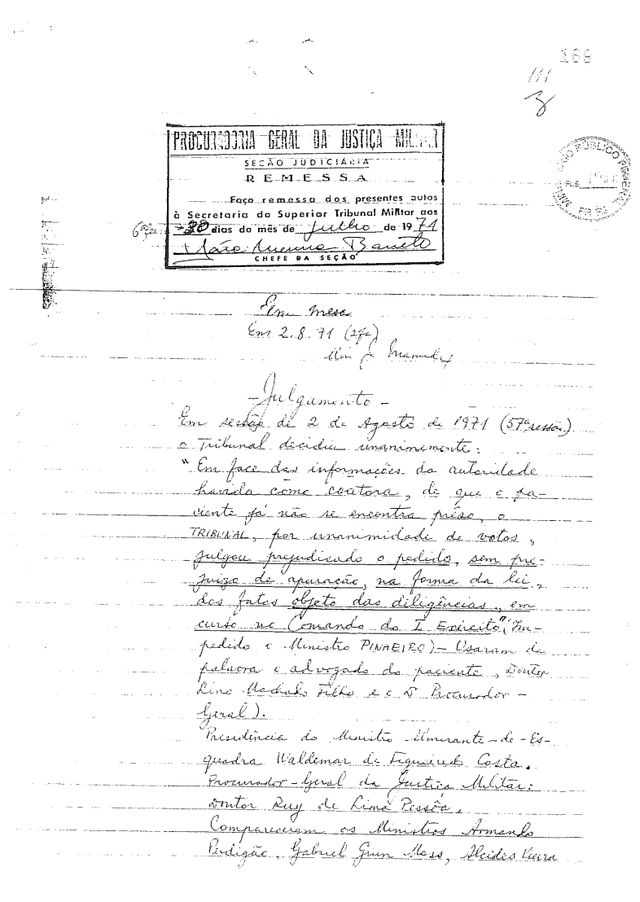 168
111
PROCURADORIA GERAL DA JUSTIÇA MILITAR
SECÃO JUDICIÁRIA
REMESSA
Faço remessa dos presentes autos
à Secretaria do Superior Tribunal Militar aos
6ª fa -30 dias do mês de julho de 1971
CHEFE DA SEÇÃO
Em mesa
Em 2.8.71 (2ª fa)
Min
- Julgamento -
Em sessão de 2 de Agosto de 1971 (57ª sessão)
o Tribunal decidiu unanimemente:
"Em face das informações da autoridade
havida como coatora, de que o pa-
ciente já não se encontra prêso, o
TRIBUNAL, por unanimidade de votos,
julgou prejudicado o pedido, sem pre-
juizo de apuração, na forma da lei,
dos fatos objeto das diligências, em
curso no Comando do I Exército" (Im-
pedido o Ministro PINHEIRO) - Usaram da
palavra o advogado do paciente, Doutor
Lino Machado Filho e o Dr Procurador-
Geral).
Presidência do Ministro Almirante-de-Es-
quadra Waldemar de Figueiredo Costa.
Procurador-Geral da Justiça Militar:
Doutor Ruy de Lima Pessôa.
Compareceram os Ministros Armando
Perdigão, Gabriel Grun Moss, Alcides Vieira